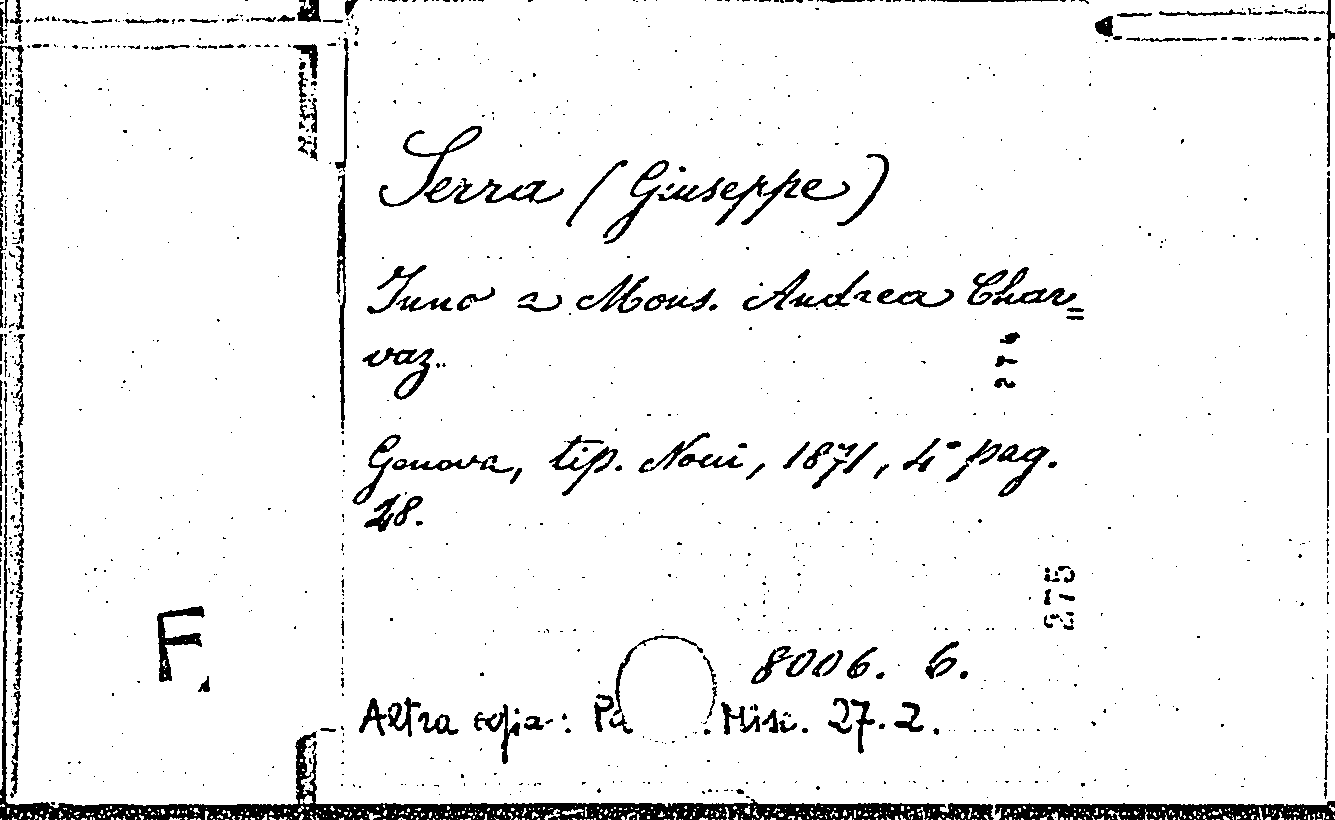 Serra (Giuseppe)
Inno a Mons. Andrea Char=
vaz.
274
Genova, tip. Noni, 1871, 4° pag.
28.
275
F.
8006. 6.
Altra copia: Misc. 27.2.